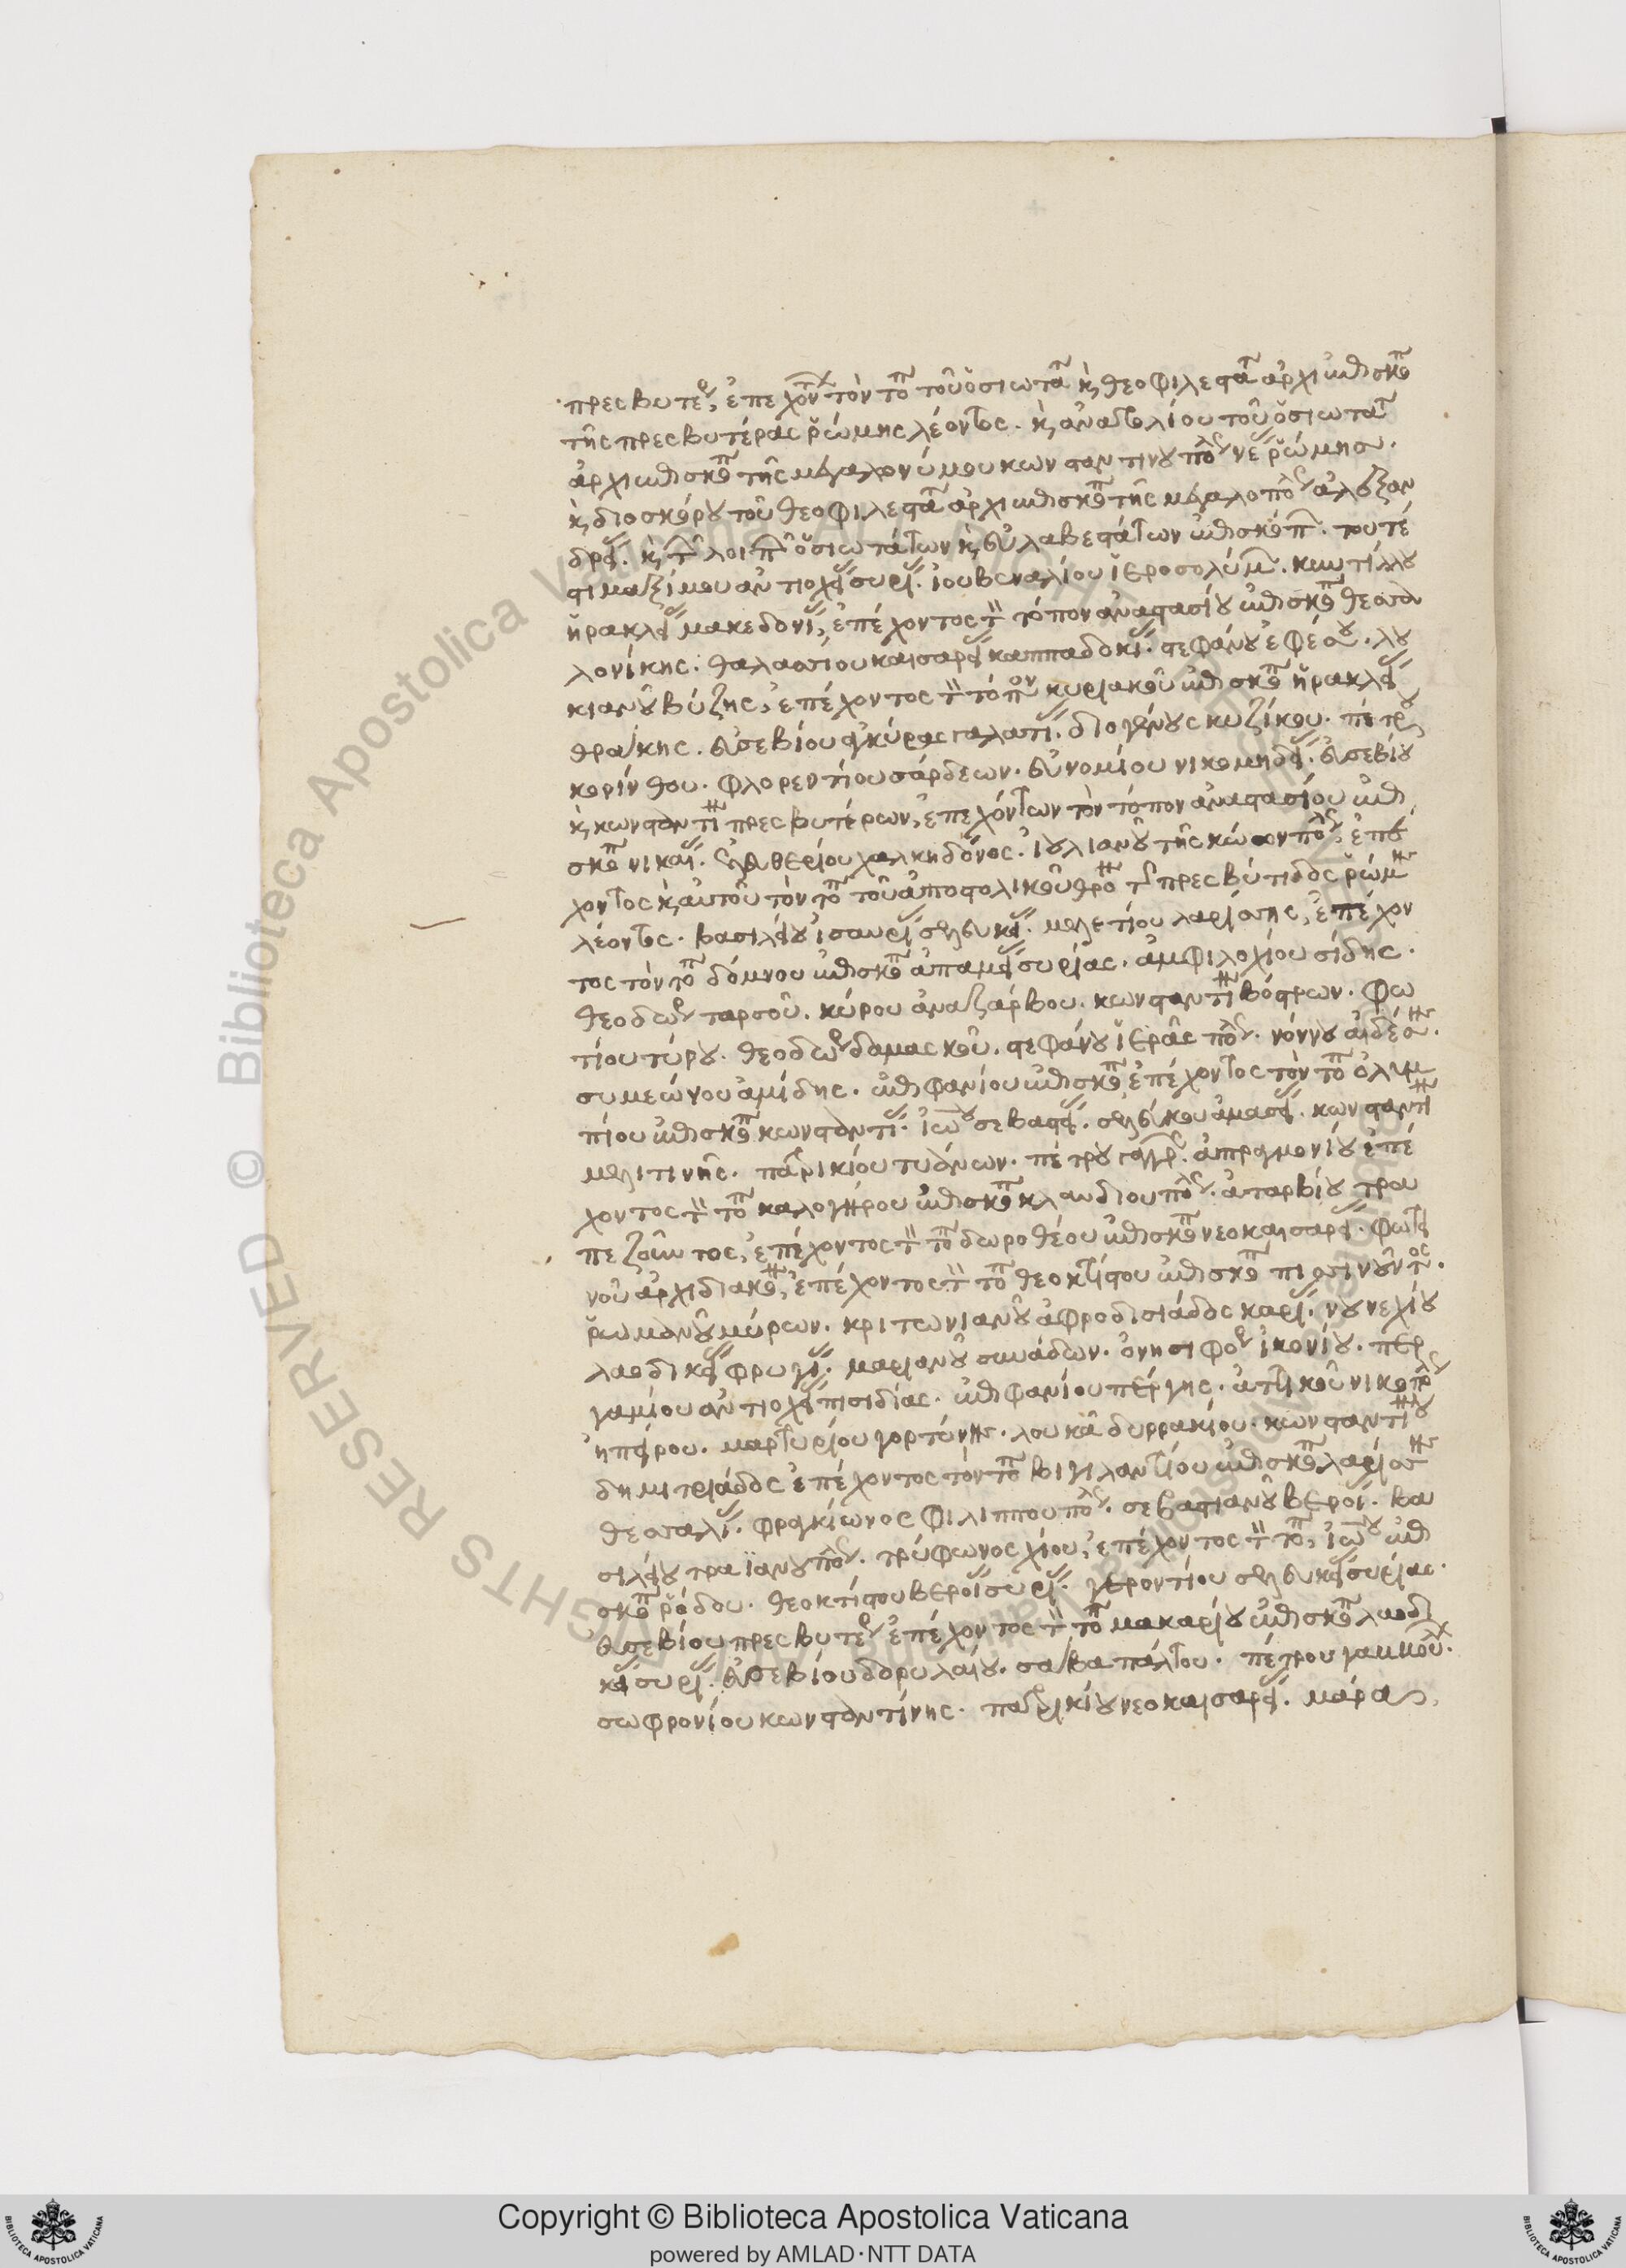 πρεσβυτέρ, ἐπεχόντ τὸν τόπ τοῦ ὁσιωτά κ, θεοφιλεστά ἀρχιεπισκό
τῆς πρεσβυτέρας ῥώμης λέοντος. κ, ἀνατολίου τοῦ ὁσιωτάτ
ἀρχιεπισκόπ τῆς μεγαλονύμου κωνσταντινουπόλ νέ ῥώμησ.
κ, διοσκόρου τοῦ θεοφιλεστά ἀρχιεπισκόπ τῆς μεγαλοπόλ ἀλεξαν
δρεί. κ, τ λοιπ ὁσιωτάτων κ, εὐλαβεστάτων ἐπισκόπ. τουτέ
στι μαξίμου ἀντιοχεί συρί. ἰουβεναλίου ἱεροσολύμ. κυντίλλου
ἡρακλεί μακεδονί, ἐπέχοντος τ τόπον ἀναστασίου ἐπισκόπ θεσσα
λονίκης. θαλασσίου καισαρεί καππαδοκί. στεφάνου ἐφέσου. λου
κιανοῦ βύζης, ἐπέχοντος τ τόπον κυριακοῦ ἐπισκόπ ἡρακλεί
θράκης. εὐσεβίου ἀγκύρας γαλατί. διογένους κυζίκου. πέτρ
κορίνθου. φλορεντίου σάρδεων. εὐνομίου νικομηδεί. εὐσεβίου
κ, κωνσταντίν πρεσβυτέρων, ἐπεχόντων τὸν τόπον ἀναστασίου ἐπι
σκόπ νικαί. ἐλευθερίου χαλκηδόνος. ἰουλιανοῦ τῆς κώων πόλ, ἐπέ
χοντος κ, αὐτοῦ τὸν τόπ τοῦ ἀποστολικοῦ θρόν τ πρεσβύτιδος ῥώμης
λέοντος. βασιλείου ἰσαυρί σελευκεί. μελετίου λαρίσσης, ἐπέχον
τος τὸν τόπ δόμνου ἐπισκόπ ἀπαμεί συρίας. ἀμφιλοχίου σίδης.
θεοδώρ ταρσοῦ. κύρου ἀναζάρβου. κωνσταντίν βόστρων. φω
τίου τύρου. θεοδώρ δαμασκοῦ. στεφάνου ἱερᾶς πόλ. νόννου αἰδέσης.
συμεώνου ἀμίδης. ἐπιφανίου ἐπισκόπ, ἐπέχοντος τὸν τόπ ὀλυμ
πίου ἐπισκόπ κωνσταντί. ἰω σεβαστεί. σελεύκου ἀμασεί. κωνσταντίν
μελιτινῆς. πατρικίου τυάνων. πέτρου γάγγρ. ἀπραγμονίου ἐπέ
χοντος τ τόπ καλογήρου ἐπισκόπ κλαυδιουπόλ. ἀταρβίου τρα
πεζοῦντος, ἐπέχοντος τ τόπ δωροθέου ἐπισκόπ νεοκαισαρεί. φωτει
νοῦ ἀρχιδιακόν, ἐπέχοντος τ τόπ θεοκτίστου ἐπισκόπ πισσινοῦντος.
ῥωμανοῦ μύρων. κριτωνιανοῦ ἀφροδισιάδος καρί. νουνεχίου
λαοδικεί φρυγί. μαριανοῦ συνάδων. ὀνησιφόρ ἰκονίου. περ
γαμίου ἀντιοχεί πισιδίας. ἐπιφανίου πέργης. ἀττικοῦ νικοπόλ
ἠπείρου. μαρτυρίου γορτύνης. λουκᾶ δυρραχίου. κωνσταντίνου
δημιτριάδος ἐπέχοντος τὸν τόπ βιγιλαντίου ἐπισκόπ λαρίσσης
θεσσαλί. φραγκίωνος φιλιππουπόλ. σεβαστιανοῦ βεροί. βα
σιλείου τραϊανουπόλ. τρύφωνος χίου, ἐπέχοντος τ τόπ, ἰω ἐπι
σκόπ ῥόδου. θεοκτίστου βεροί συρί. γεροντίου σελευκεί συρίας.
εὐσεβίου πρεσβυτέρ ἐπέχοντος τ τόπ μακαρίου ἐπισκόπ λαοδι
κεί συρί. εὐσεβίου δορυλαίου. σάββα πάλτου. πέτρου
σωφρονίου κωνσταντίνης. πατρικίου νεοκαισαρεί. μάρα
Copyright © Biblioteca Apostolica Vaticana
powered by AMLAD·NTT DATA